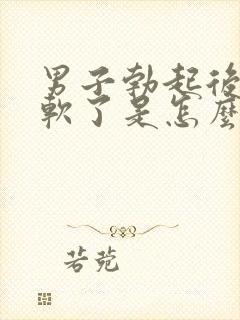 男子勃起後
軟了是怎麼
若菀